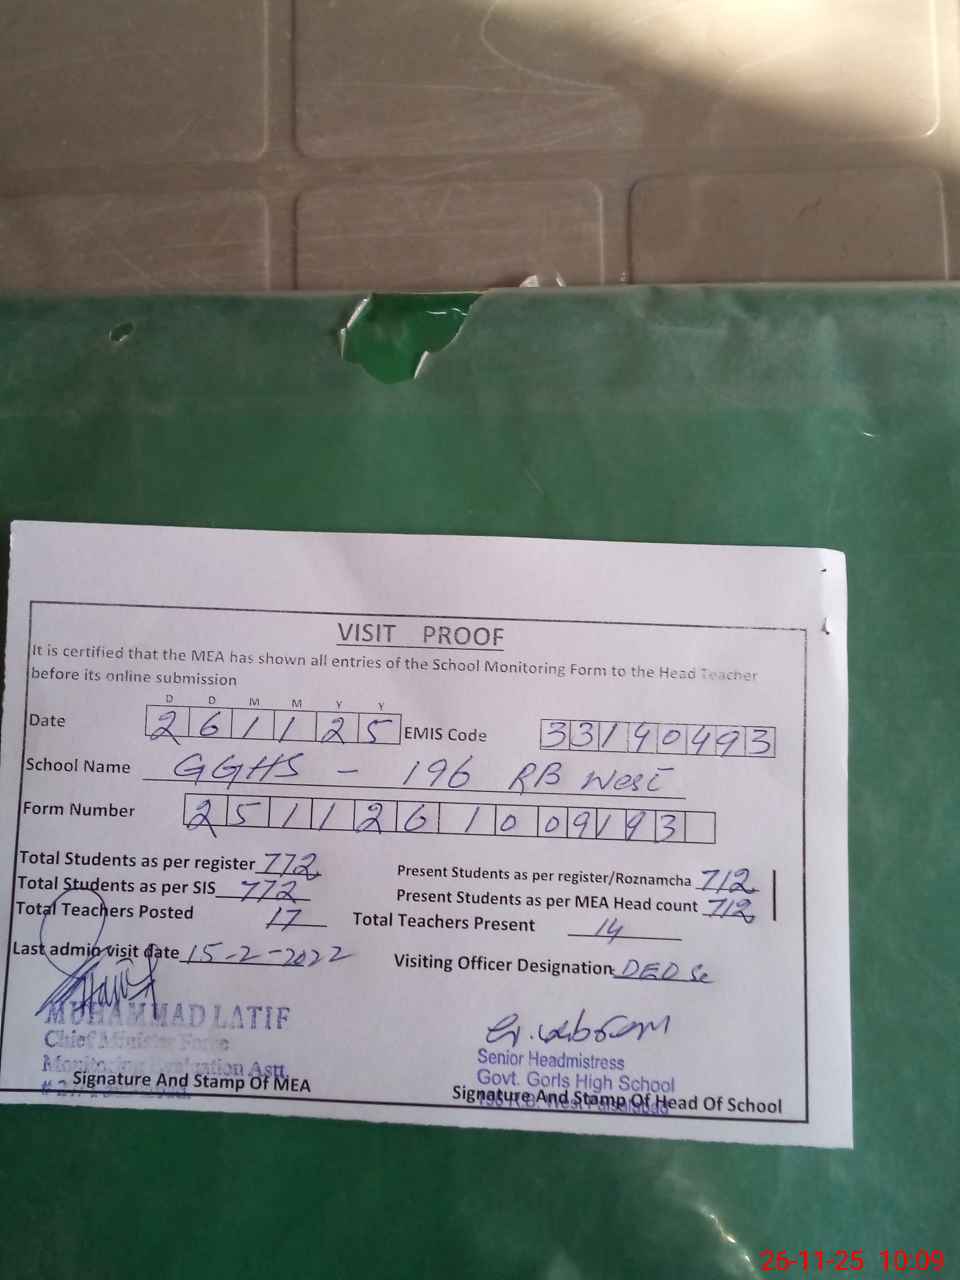 VISIT PROOF
It is certified that the MEA has shown all entries of the School Monitoring Form to the Head Teacher
before its online submission
D D M M Y Y
Date 2 6 1 1 2 5 EMIS Code 3 3 1 9 0 4 9 3
School Name GGHS - 196 RB West
Form Number 2 5 1 1 2 6 1 0 0 9 1 9 3
Total Students as per register 772 Present Students as per register/Roznamcha 712
Total Students as per SIS 772 Present Students as per MEA Head count 712
Total Teachers Posted 17 Total Teachers Present 14
Last admin visit date 15-2-2022 Visiting Officer Designation DEO Se
MUHAMMAD LATIF
Chief Minister Force
Monitoring Evaluation Astt.
Signature And Stamp Of MEA
Senior Headmistress
Govt. Gorls High School
196 R.B. West Faisalabad
Signature And Stamp Of Head Of School
26-11-25 10:09